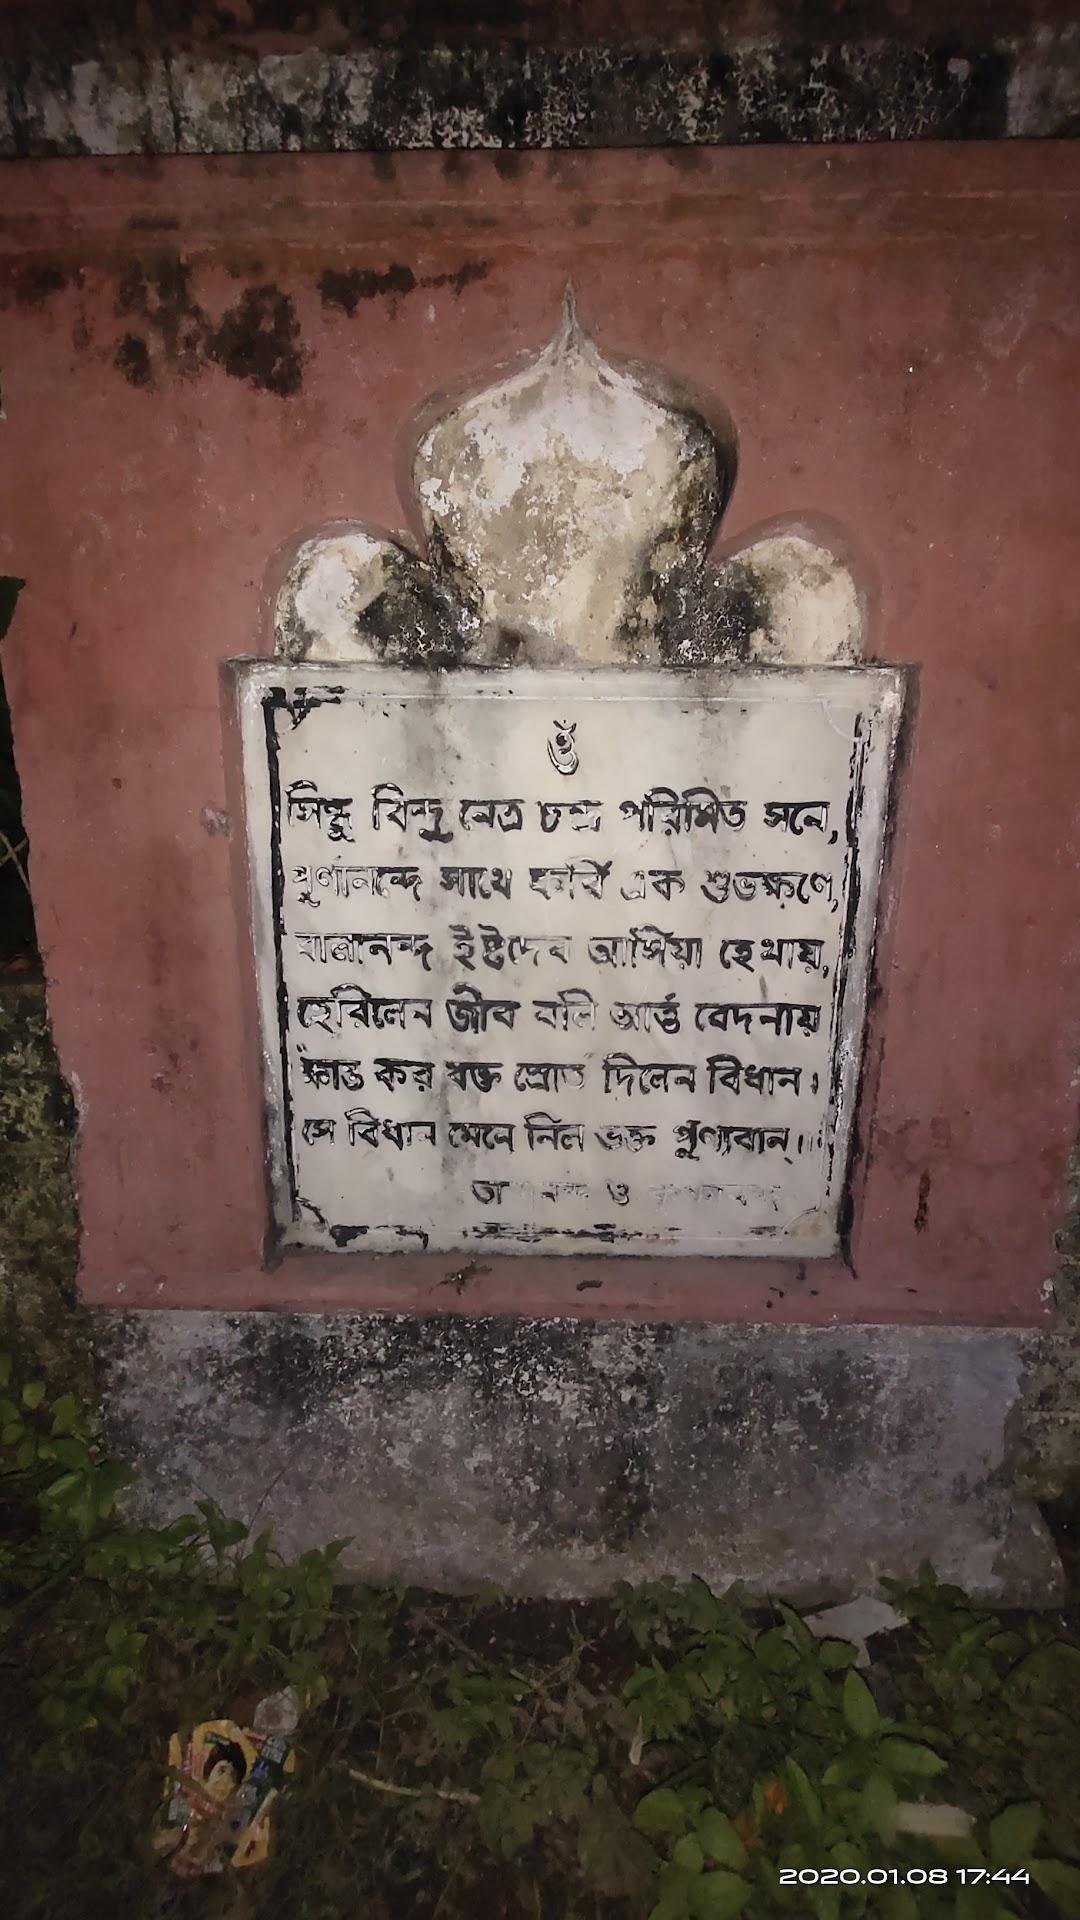 ওঁ
সিন্ধু বিন্দু নেত্র চন্দ্র পরিমিত সনে,
পূর্ণানন্দে সাথে করি এক শুভক্ষণে,
বালানন্দ ইষ্টদেব আসিয়া হেথায়,
হেরিলেন জীব বলি আর্ত্ত বেদনায়
"ক্ষান্ত কর রক্ত স্রোত" দিলেন বিধান।
সে বিধান মেনে নিল ভক্ত পুণ্যবান্।।
ও
2020.01.08 17:44